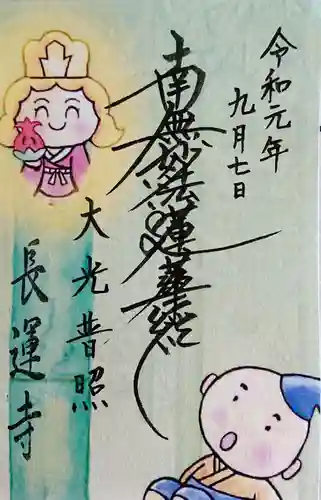 令和元年
九月七日
南無妙法蓮華経
大光普照
長運寺